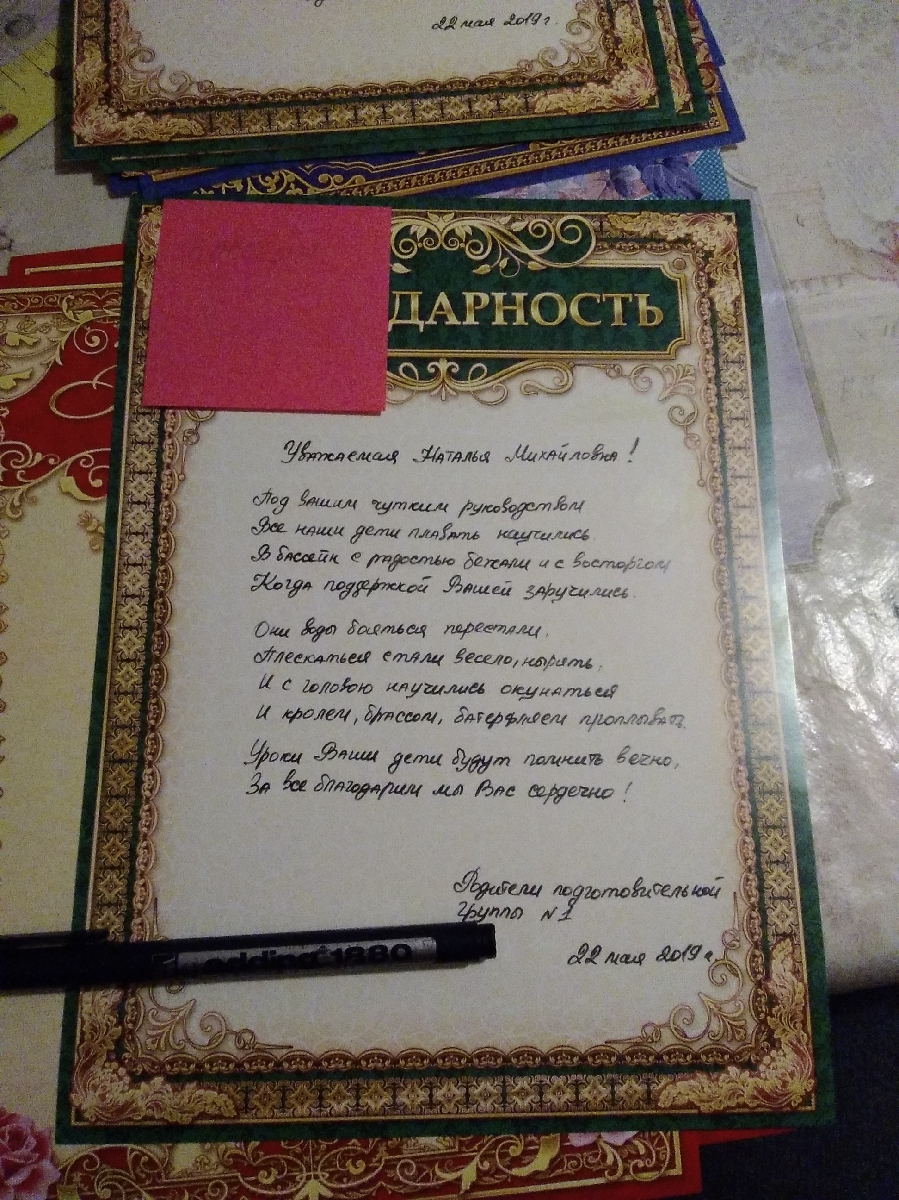 22 мая 2019 г.
ДАРНОСТЬ
Уважаемая Наталья Михайловна!
Под вашим чутким руководством
Все наши дети плавать научились.
В бассейн с радостью бежали и с восторгом
Когда поддержкой Вашей заручились.
Они воды бояться перестали,
Плескаться стали весело, нырять,
И с головою научились окунаться
И кролем, брассом, батерфляем проплывать.
Уроки Ваши дети будут помнить вечно,
За все благодарим мы Вас сердечно!
Родители подготовительной
группы №1
edding 1880
22 мая 2019 г.